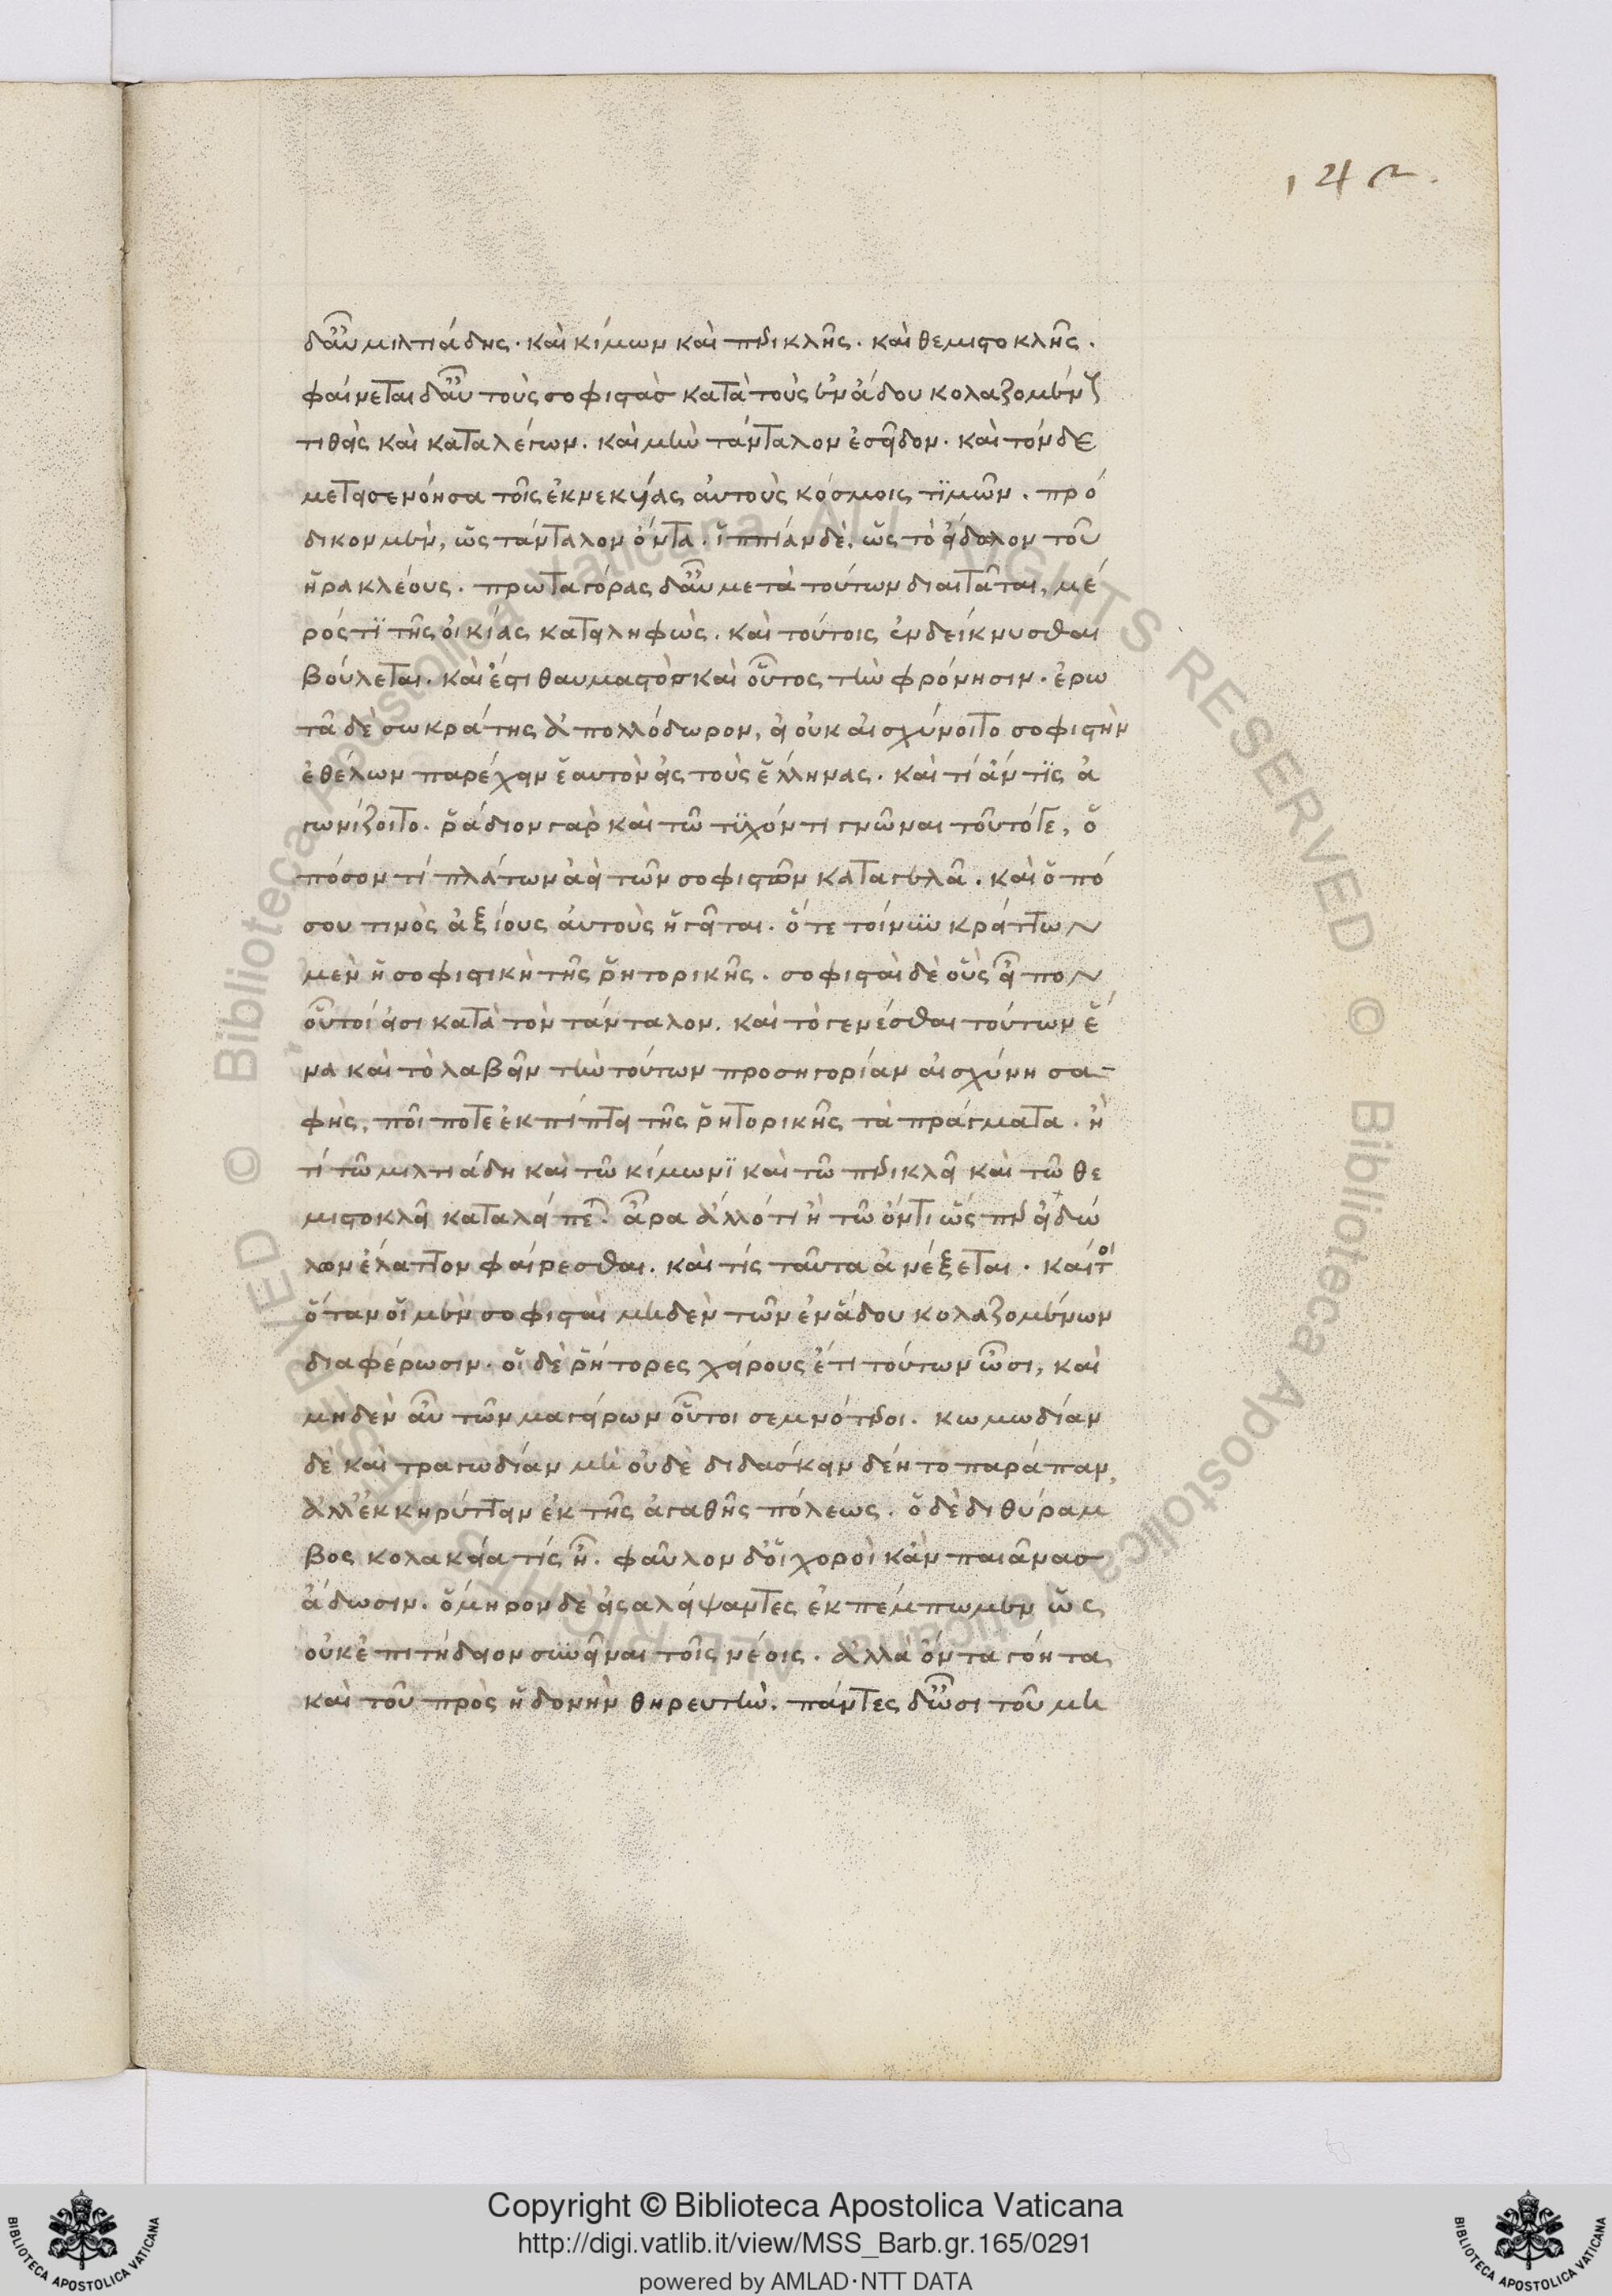 142.
δ' αὖ μιλτιάδης. καὶ κίμων καὶ περικλῆς. καὶ θεμιστοκλῆς.
φαίνεται δ' αὖ τοὺς σοφιστὰς κατὰ τοὺς ἐν ἅδου κολαζομένους
τιθεὶς καὶ καταλέγων. καὶ μὴν τάνταλον ἐσεῖδον. καὶ τόνδε
μετεισενόησα τοῖς ἐκ νεκυίας αὐτοὺς κόσμοις τιμῶν. πρό
δικον μὲν, ὡς τάνταλον ὄντα. ἱππίαν δὲ, ὡς τὸ εἴδολον τοῦ
ἡρακλέους. πρωταγόρας δ' αὖ μετὰ τούτων διαιτᾶται, μέ
ρός τι τῆς οἰκίας κατειληφώς. καὶ τούτοις ἐνδείκνυσθαι
βούλεται. καὶ ἔστι θαυμαστὸς καὶ οὗτος τὴν φρόνησιν. ἐρω
τᾶ δὲ σωκράτης ἀπολλόδωρον, εἰ οὐκ αἰσχύνοιτο σοφιστὴν
ἐθέλων παρέχειν ἑαυτὸν εἰς τοὺς ἕλληνας. καὶ τί ἄν τις ἀ
γωνίζοιτο. ῥάδιον γὰρ καὶ τῶ τυχόντι γνῶναι τοῦτότε, ὁ
πόσον τί πλάτων ἀεὶ τῶν σοφιστῶν καταγελᾶ. καὶ ὁπό
σου τινὸς ἀξίους αὐτοὺς ἡγεῖται. ὅτε τοίνυν κρείττων
μεν ἡ σοφιστικὴ τῆς ῥητορικῆς. σοφισταὶ δὲ οὓς εἶπον
οὗτοί εἰσι κατὰ τὸν τάνταλον. καὶ τὸ γενέσθαι τούτων ἕ
να καὶ τὸ λαβεῖν τὴν τούτων προσηγορίαν αἰσχύνη σα
φής, ποῖ ποτε ἐκπίπτει τῆς ῥητορικῆς τὰ πράγματα. ἢ
τί τῶ μιλτιάδη καὶ τῶ κίμωνι καὶ τῶ περικλεῖ καὶ τῶ θε
μιστοκλεῖ καταλείπεται. ἆρα ἄλλό τι ἢ τῶ ὄντι ὥσπερ εἰδώ
λων ἔλαττον φαίρεσθαι. καὶ τίς ταῦτα ἀνέξεται. καίτοι
ὅταν οἱ μὲν σοφισταὶ μηδὲν τῶν ἐν ἅδου κολαζομένων
διαφέρωσιν. οἱ δὲ ῥήτορες χείρους ἔτι τούτων ὦσι, καὶ
μηδὲν αὖ τῶν μαγείρων οὗτοι σεμνότεροι. κωμωδίαν
δὲ καὶ τραγωδίαν μὴ οὐδὲ διδάσκειν δέη το παράπαν,
ἀλλ' ἐκκηρύττειν ἐκ τῆς ἀγαθῆς πόλεως. ὁ δὲ διθύραμ
βος κολακεία τίς ἦ. φαῦλον δ' οἱ χοροὶ κἂν παιᾶνας
ἄδωσιν. ὅμηρον δὲ εἰσαλείψαντες ἐκπέμπωμεν ὡς
οὐκ ἐπιτήδειον συνεῖναι τοῖς νέοις. ἀλλὰ ὄντα γόητα
καὶ τοῦ πρὸς ἡδονὴν θηρευτήν. πάντες δ' ὦσι τοῦ μη
Copyright © Biblioteca Apostolica Vaticana
http://digi.vatlib.it/view/MSS_Barb.gr.165/0291
powered by AMLAD·NTT DATA